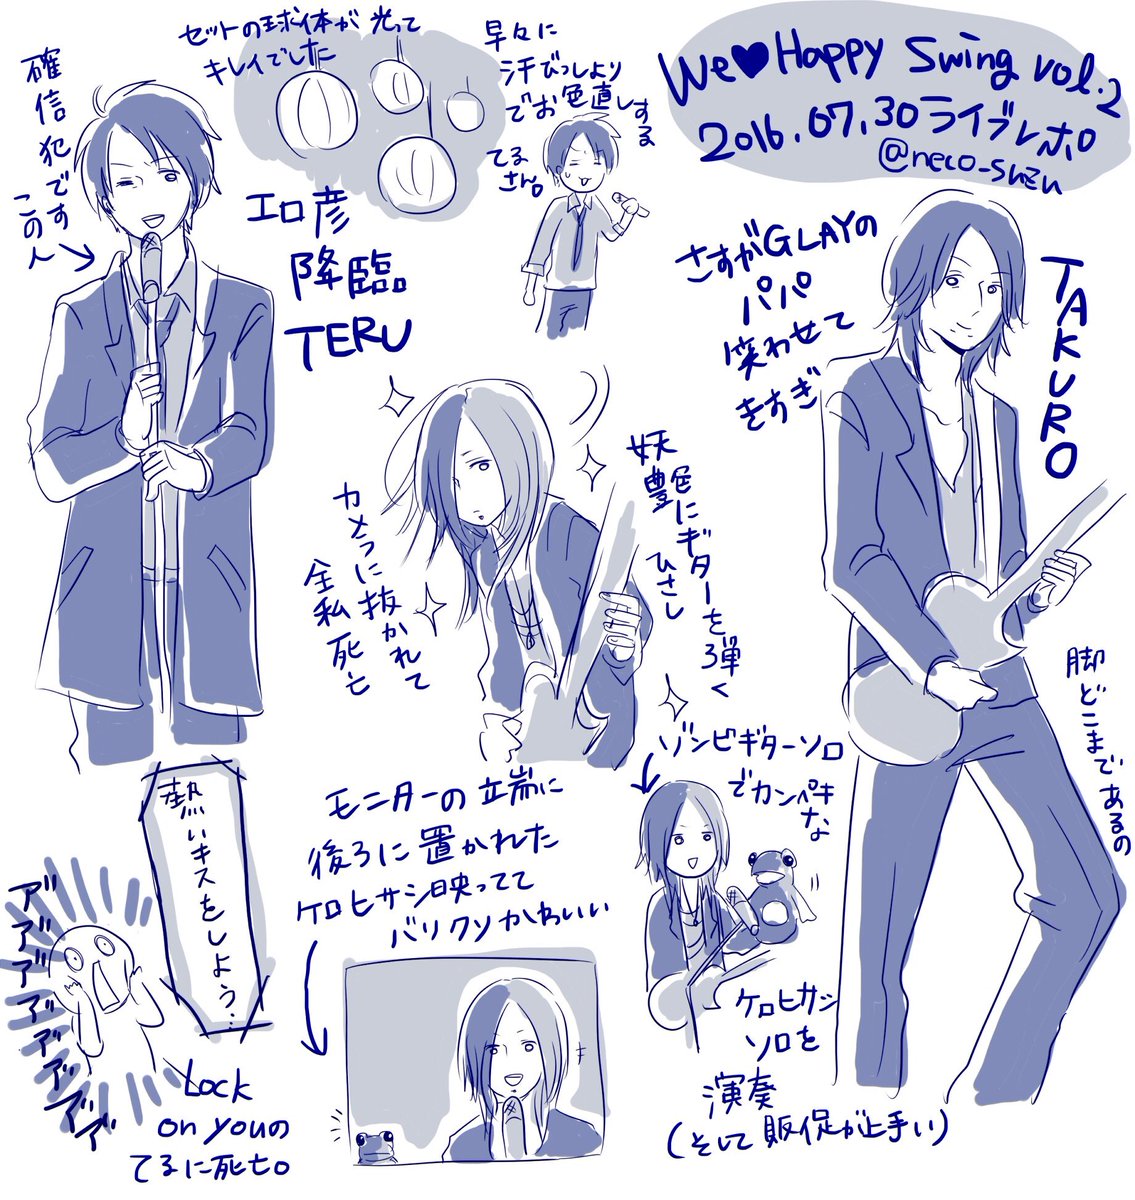 We♥Happy Swing vol.2
2016.07.30ライブレポ
@neco-suzu
確信犯です
この人
セットの球体が光って
キレイでした
早々に
汗びっしより
でお色直しする
てる
さん。
エロ彦
降臨
TERU
さすがGLAYの
パパ
笑わせて
きすぎ
TAKURO
脚どこまであるの
妖豊色にギターを弾く
ひさし
カメラに抜かれて
全私死亡
ゾンビギターソロ
でカンペキな
ケロヒサシ
ソロを
演奏
(そして販促が上手い)
モニターの立端に
後ろに置かれた
ケロヒサシ映ってて
バリクソかわいい
熱いキスをしよう…
ア゛ア゛ア゛ア゛ア゛ア゛ア゛ア゛
Lock
on youの
てるに死亡。